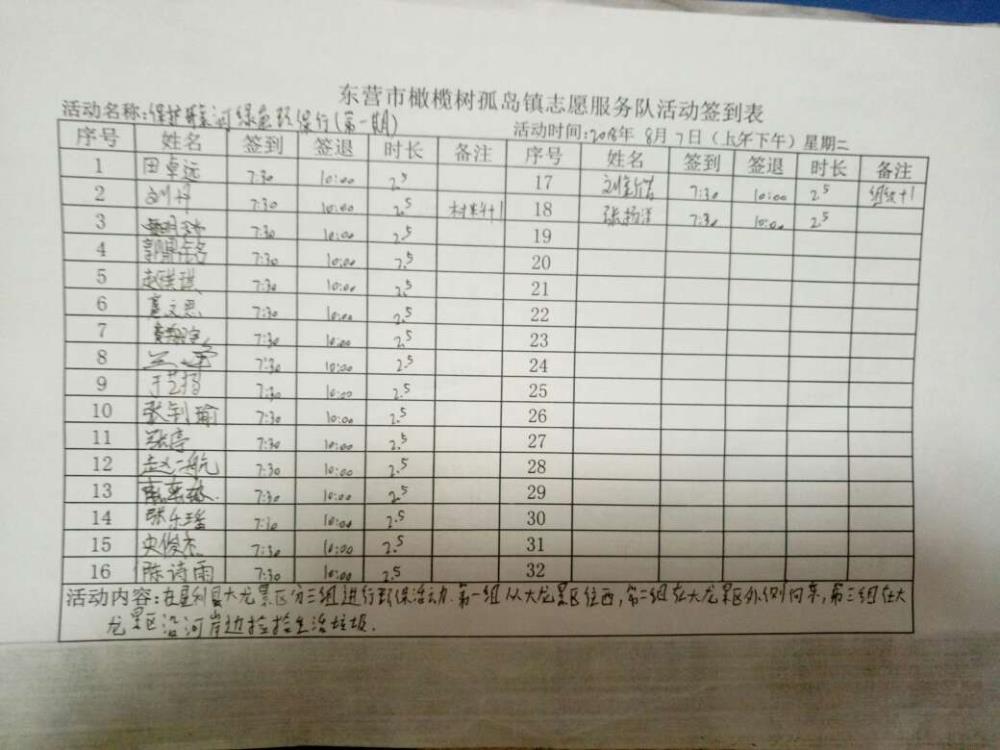 东营市橄榄树孤岛镇志愿服务队活动签到表
活动名称:保护 河绿色环保行(第一期)
活动时间:2018年 8月7日(上午下午)星期二
序号 姓名 签到 签退 时长 备注 序号 姓名 签到 签退 时长 备注
1 田卓远 7:30 10:00 2.5 17 刘 7:30 10:00 2.5 组织+1
2 刘丹 7:30 10:00 2.5 +1 18 张扬洋 7:30 10:00 2.5
3 7:30 10:00 2.5 19
4 郭 名 7:30 10:00 2.5 20
5 赵 琪 7:30 10:00 2.5 21
6 文思 7:30 10:00 2.5 22
7 7:30 10:00 2.5 23
8 7:30 10:00 2.5 24
9 于艺扬 7:30 10:00 2.5 25
10 张钊瑜 7:30 10:00 2.5 26
11 张亭 7:30 10:00 2.5 27
12 赵一航 7:30 10:00 2.5 28
13 7:30 10:00 2.5 29
14 张乐瑶 7:30 10:00 2.5 30
15 史俊杰 7:30 10:00 2.5 31
16 陈诗雨 7:30 10:00 2.5 32
活动内容:在垦利县大龙景区分三组进行环保活动.第一组从大龙景区往西,第二组在大龙景区外侧向东,第三组在大
龙景区沿河岸边捡拾生活垃圾.